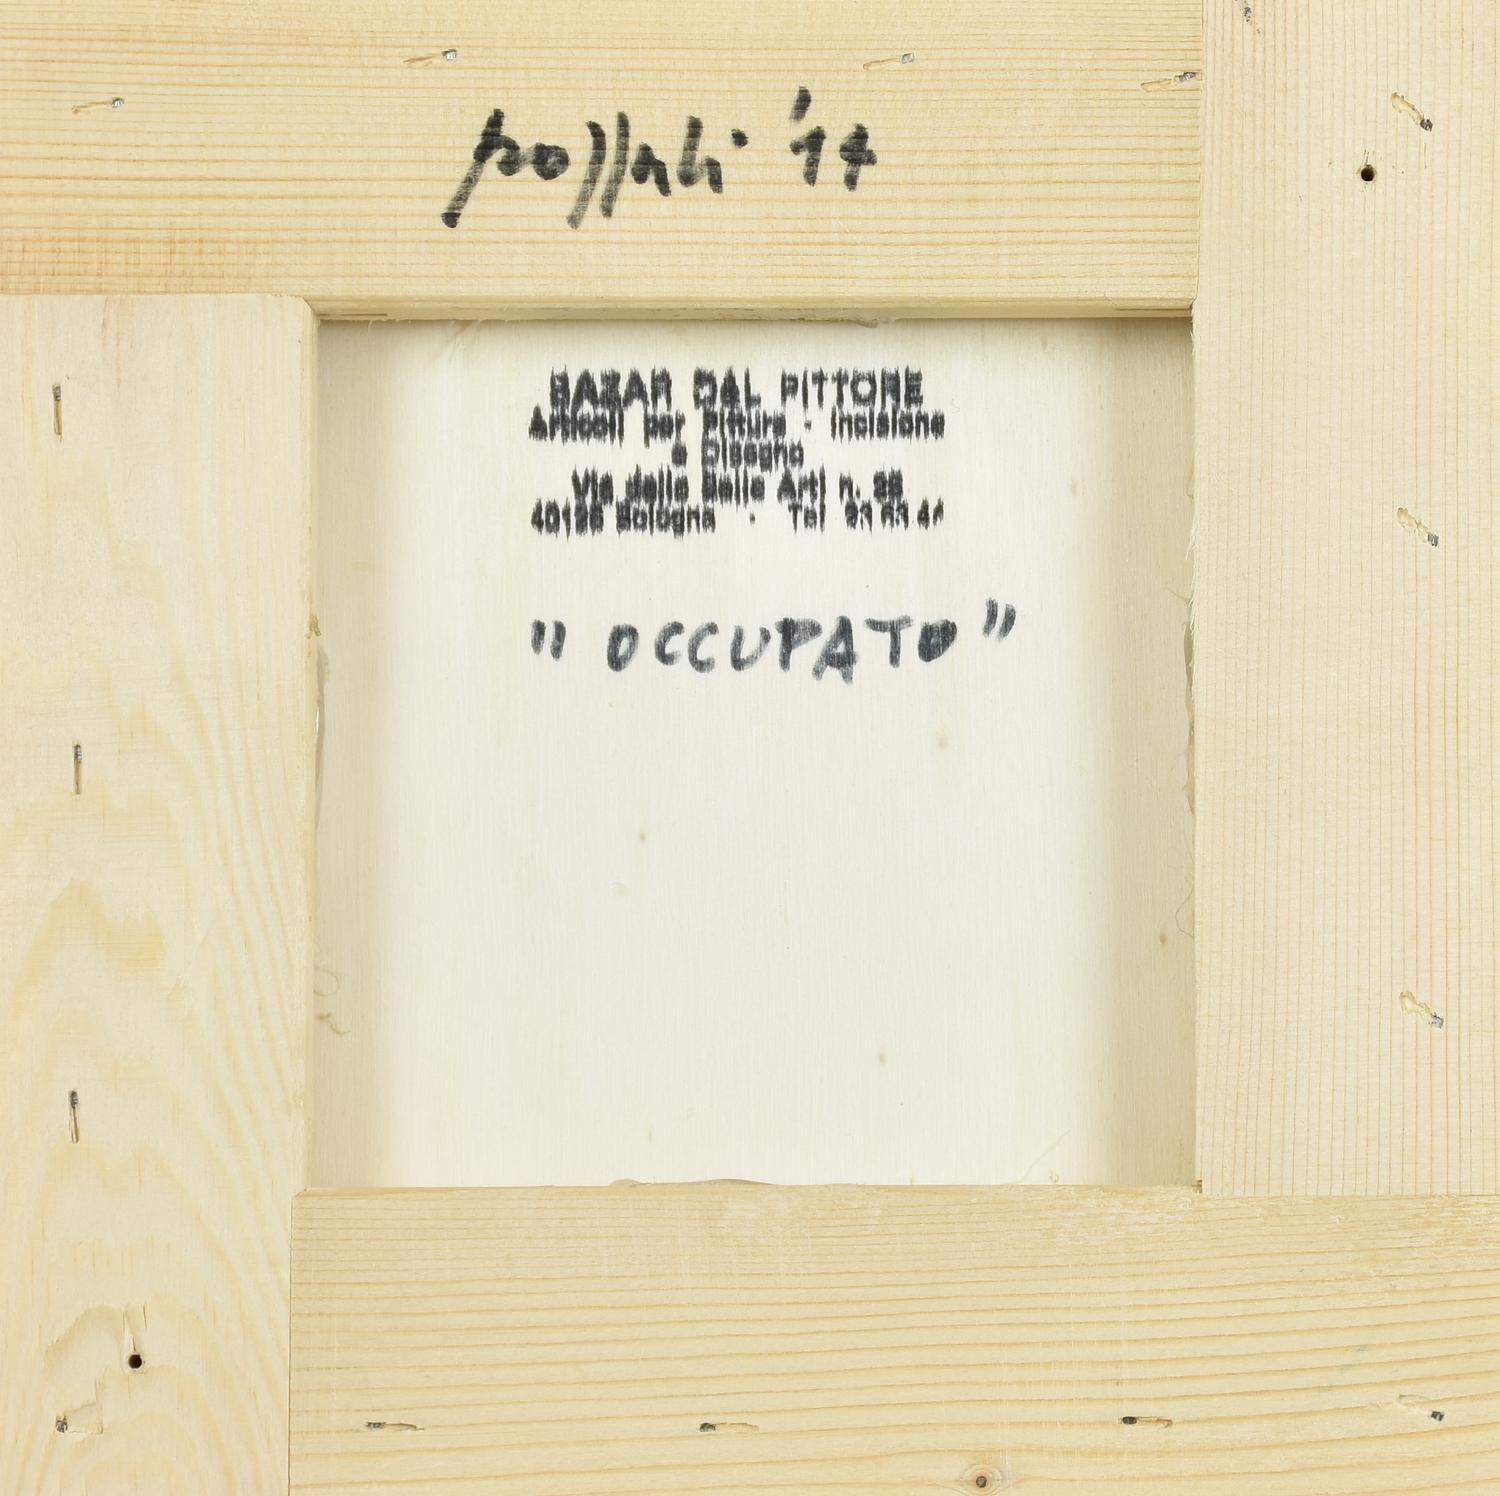 pozzati '14
BAZAR DAL PITTORE
Articoli per Pittura - Incisione
e Disegno
Via delle Belle Arti n. 28
40126 Bologna - Tel
" OCCUPATO "